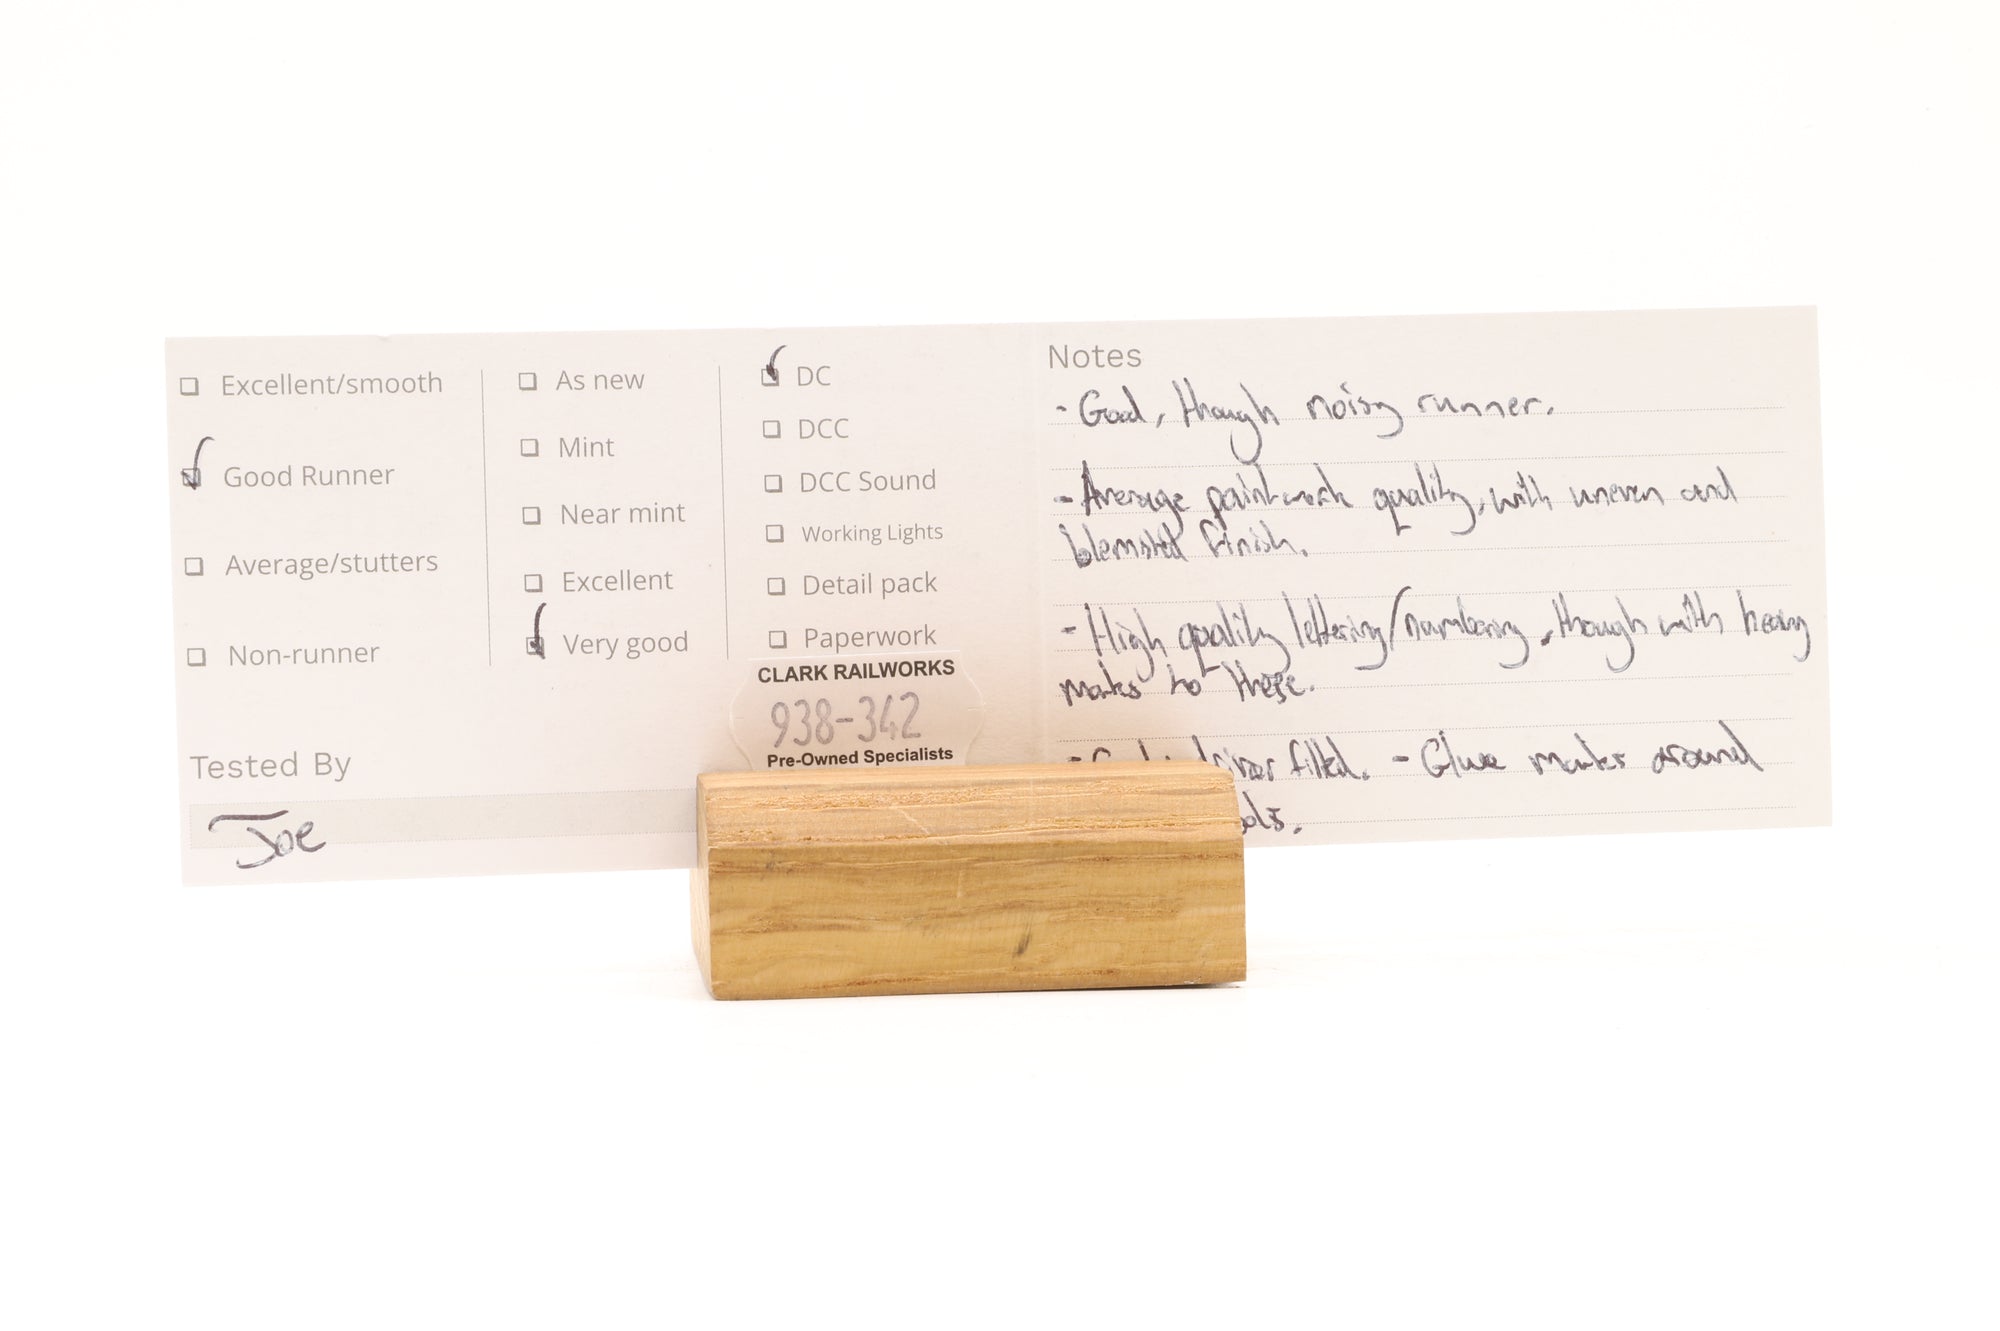 Excellent/smooth
Good Runner
Average/stutters
Non-runner
As new
Mint
Near mint
Excellent
Very good
DC
DCC
DCC Sound
Working Lights
Detail pack
Paperwork
CLARK RAILWORKS
938-342
Pre-Owned Specialists
Tested By
Joe
Notes
- Good, though noisy runner.
- Average paintwork quality, with uneven and
blemished finish.
- High quality lettering/numbering, though with heavy
marks to these.
fitted. - Glue marks around